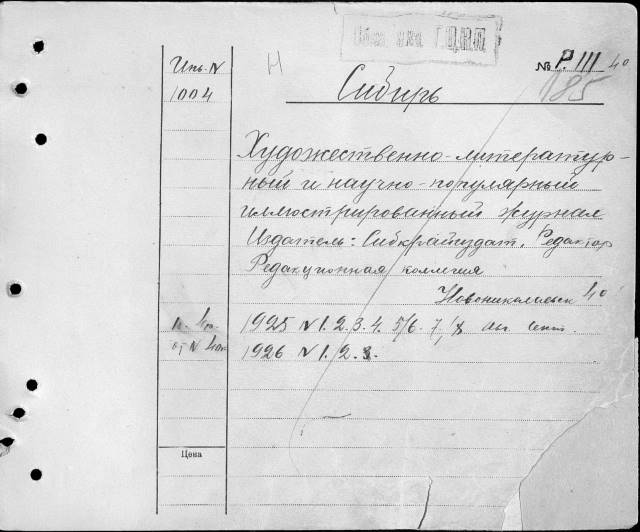 Инв. N
1004
Н
№ Р. III 40
185
Сибирь
Художественно-литератур-
ный и научно-популярный
иллюстрированный журнал
Издатель: Сибкрайиздат. Редактор
Редакционная коллегия
Новониколаевск 40
1925 N 1. 2. 3. 4. 5/6. 7/8
1926 N 1. 2. 3.
Цена